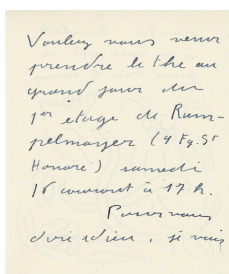 Voulez vous venir
prendre le thé au
grand jour du
1er étage de Rum-
pelmayer (4 Fg. St
Honoré) samedi
16 courant à 17 h.
Pour vous
dire adieu, je vais